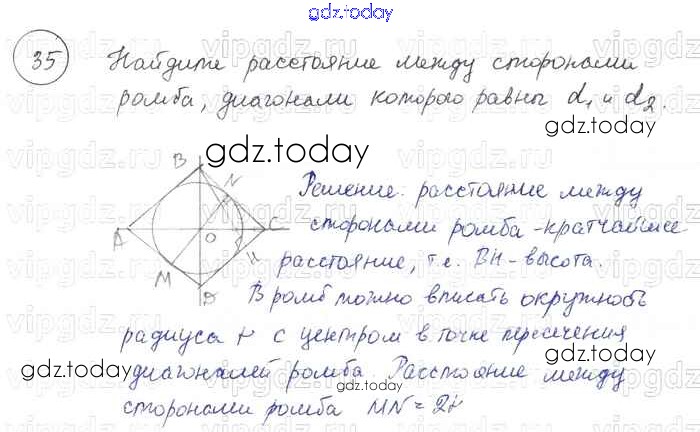 gdz.today
35 Найдите расстояние между сторонами
ромба, диагонали которого равны d₁ и d₂.
gdz.today
gdz.today
B
N
A
O
C
H
M
D
Решение: расстояние между
сторонами ромба - кратчайшее
расстояние, т.е. BH - высота.
В ромб можно вписать окружность
радиуса r с центром в точке пересечения
диагоналей ромба. Расстояние между
сторонами ромба MN = 2r
gdz.today
gdz.today
gdz.today
gdz.today
vipgdz.ru vipgdz.ru vipgdz.ru